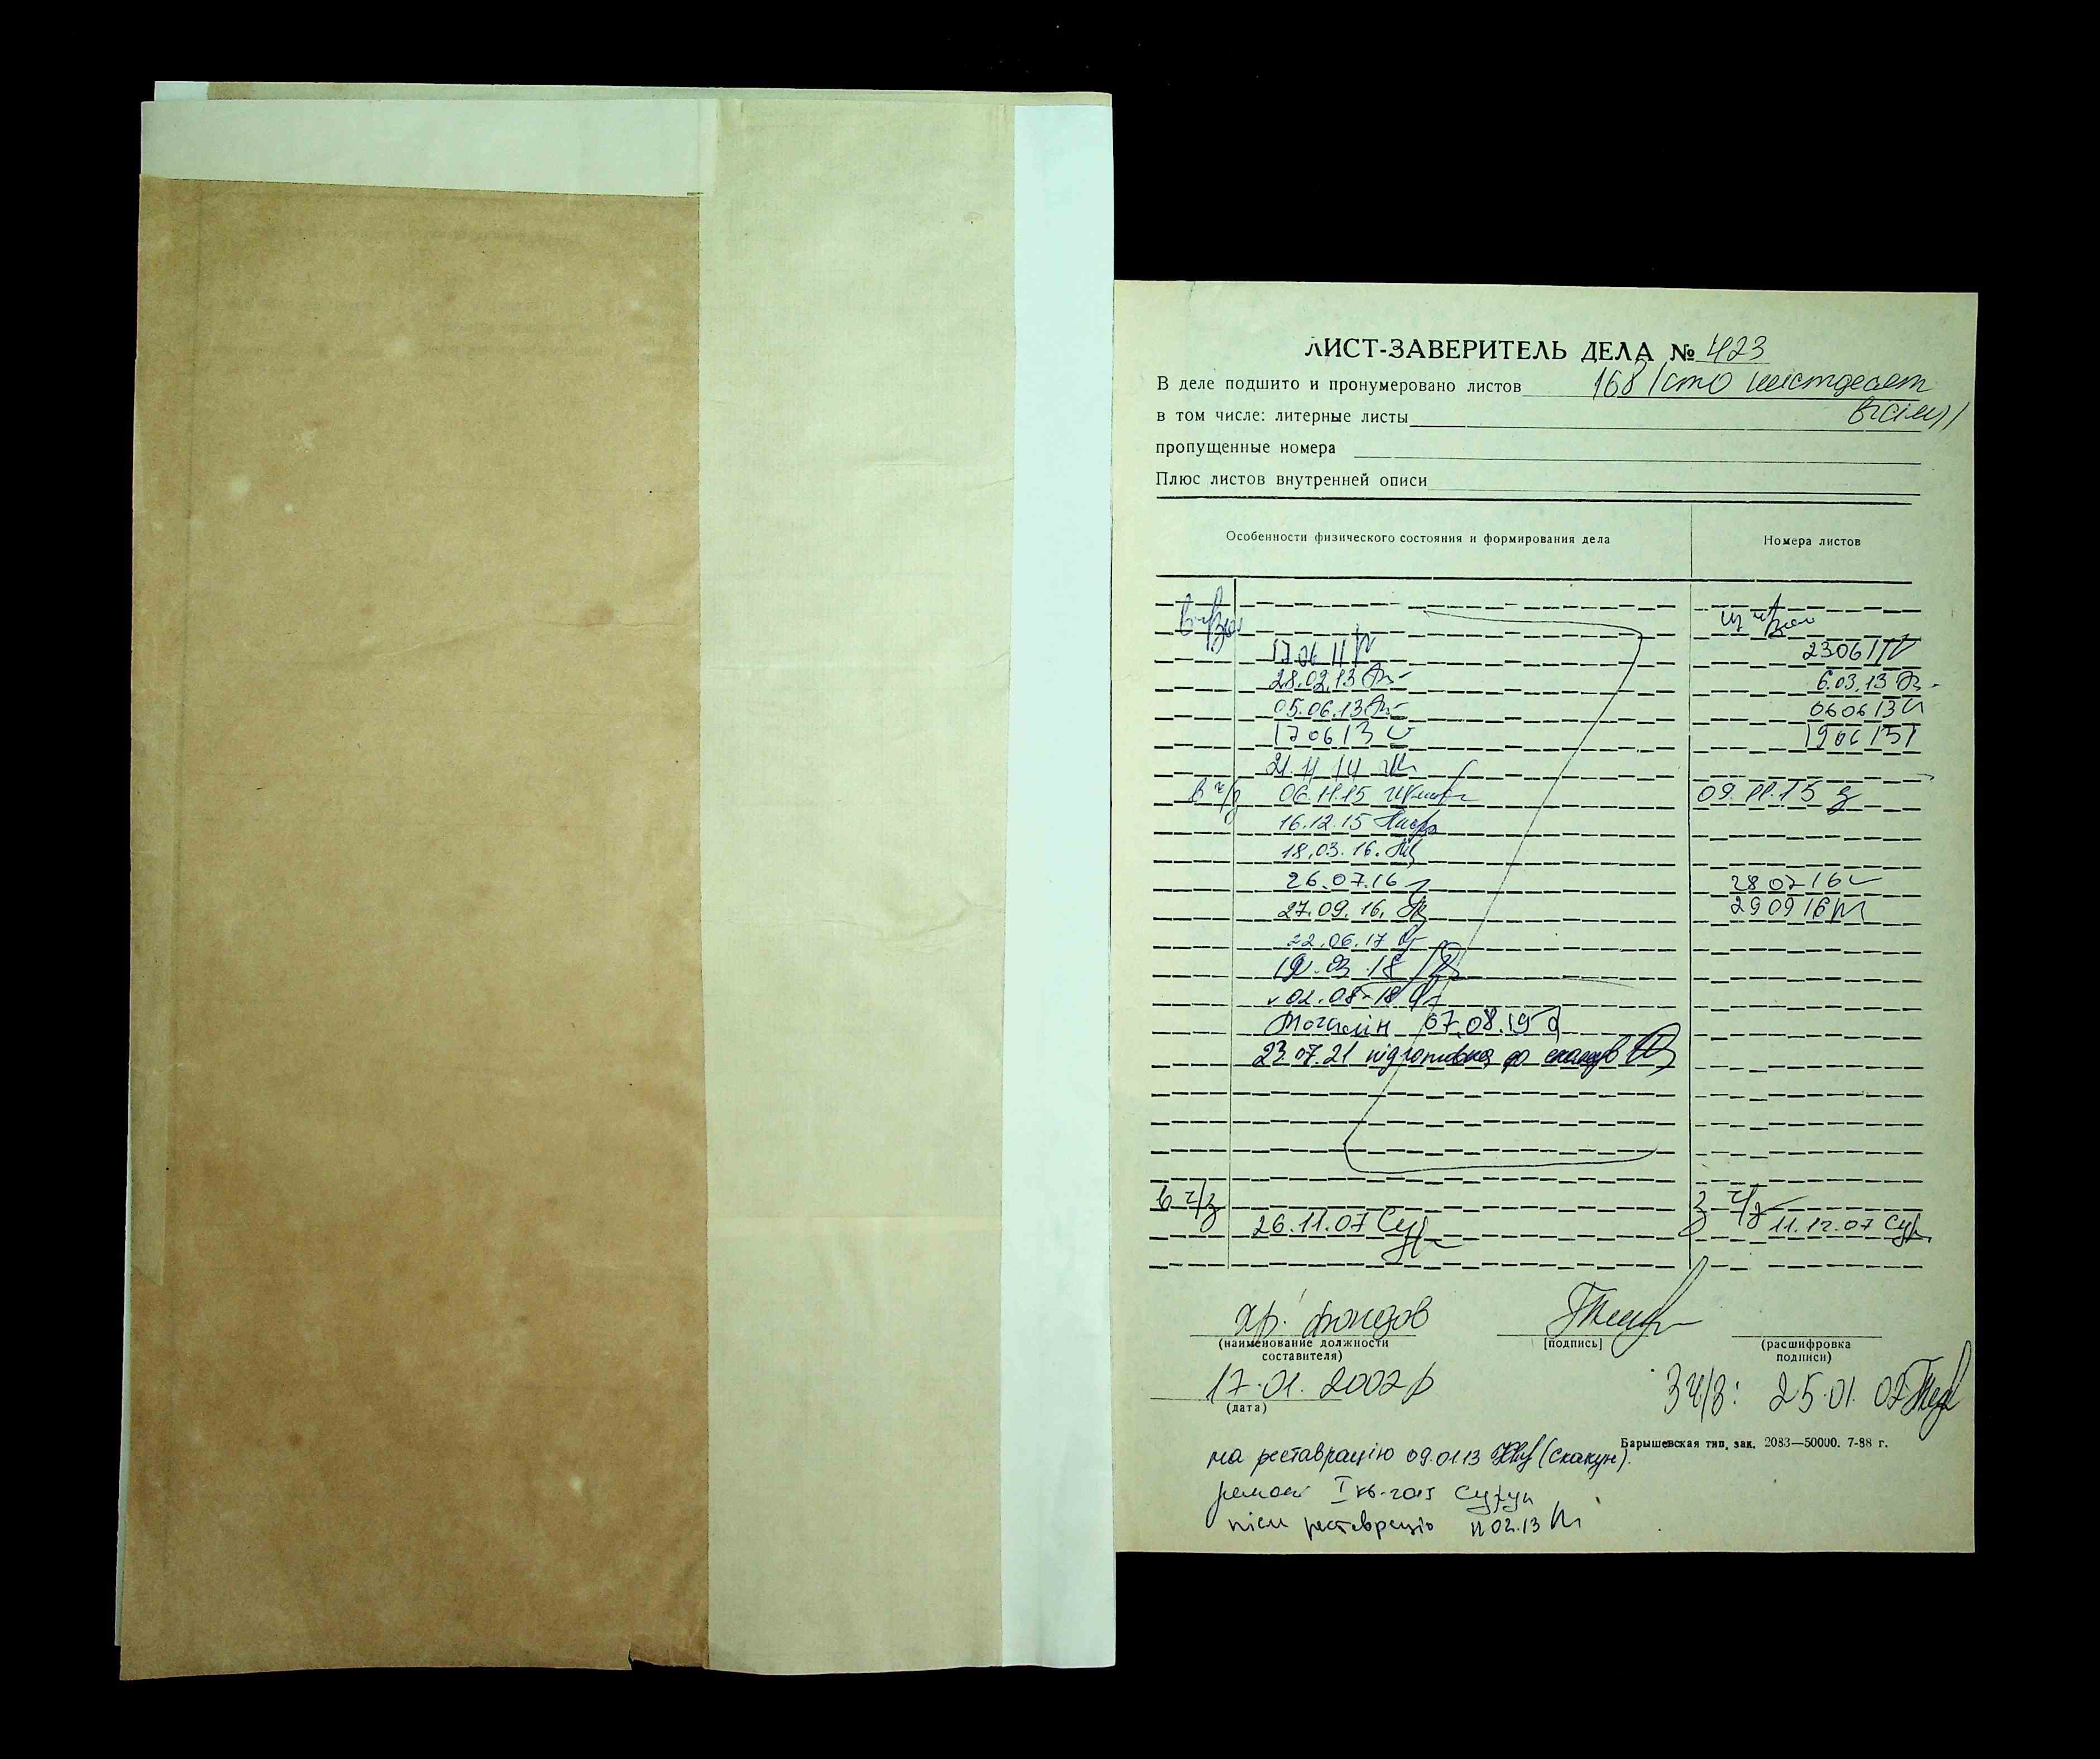 ЛИСТ-ЗАВЕРИТЕЛЬ ДЕЛА № 423
В деле подшито и пронумеровано листов 168 (сто шестдесят
в том числе: литерные листы вісім)
пропущенные номера
Плюс листов внутренней описи
Особенности физического состояния и формирования дела Номера листов
17 06 11 23 06 11
28.02.13 6.03.13
05.06.13 06 06 13
17 06 13 19 06 13
21.11.14
в ч/з 06.11.15 09.11.15
16.12.15
18.03.16.
26.07.16 28 07 16
27.09.16. 29 09 16
22.06.17
19.03.18
v 02.08.18
07.08.19
23.07.21 підготовка до
в ч/з з ч/з
26.11.07 11.12.07
хр. фондов
(наименование должности составителя) [подпись] (расшифровка подписи)
17.01.2007р З ч/з: 25.01.07
(дата)
Барышевская тип. зак. 2083—50000. 7-88 г.
на реставрацію 09.01.13 (Скакун).
ремонт I кв.
після реставрації 11 02.13